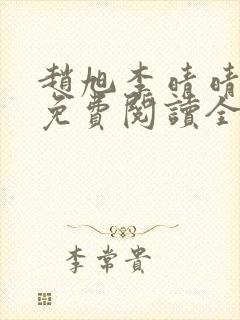 趙旭李晴晴
免費閱讀全
李常貴